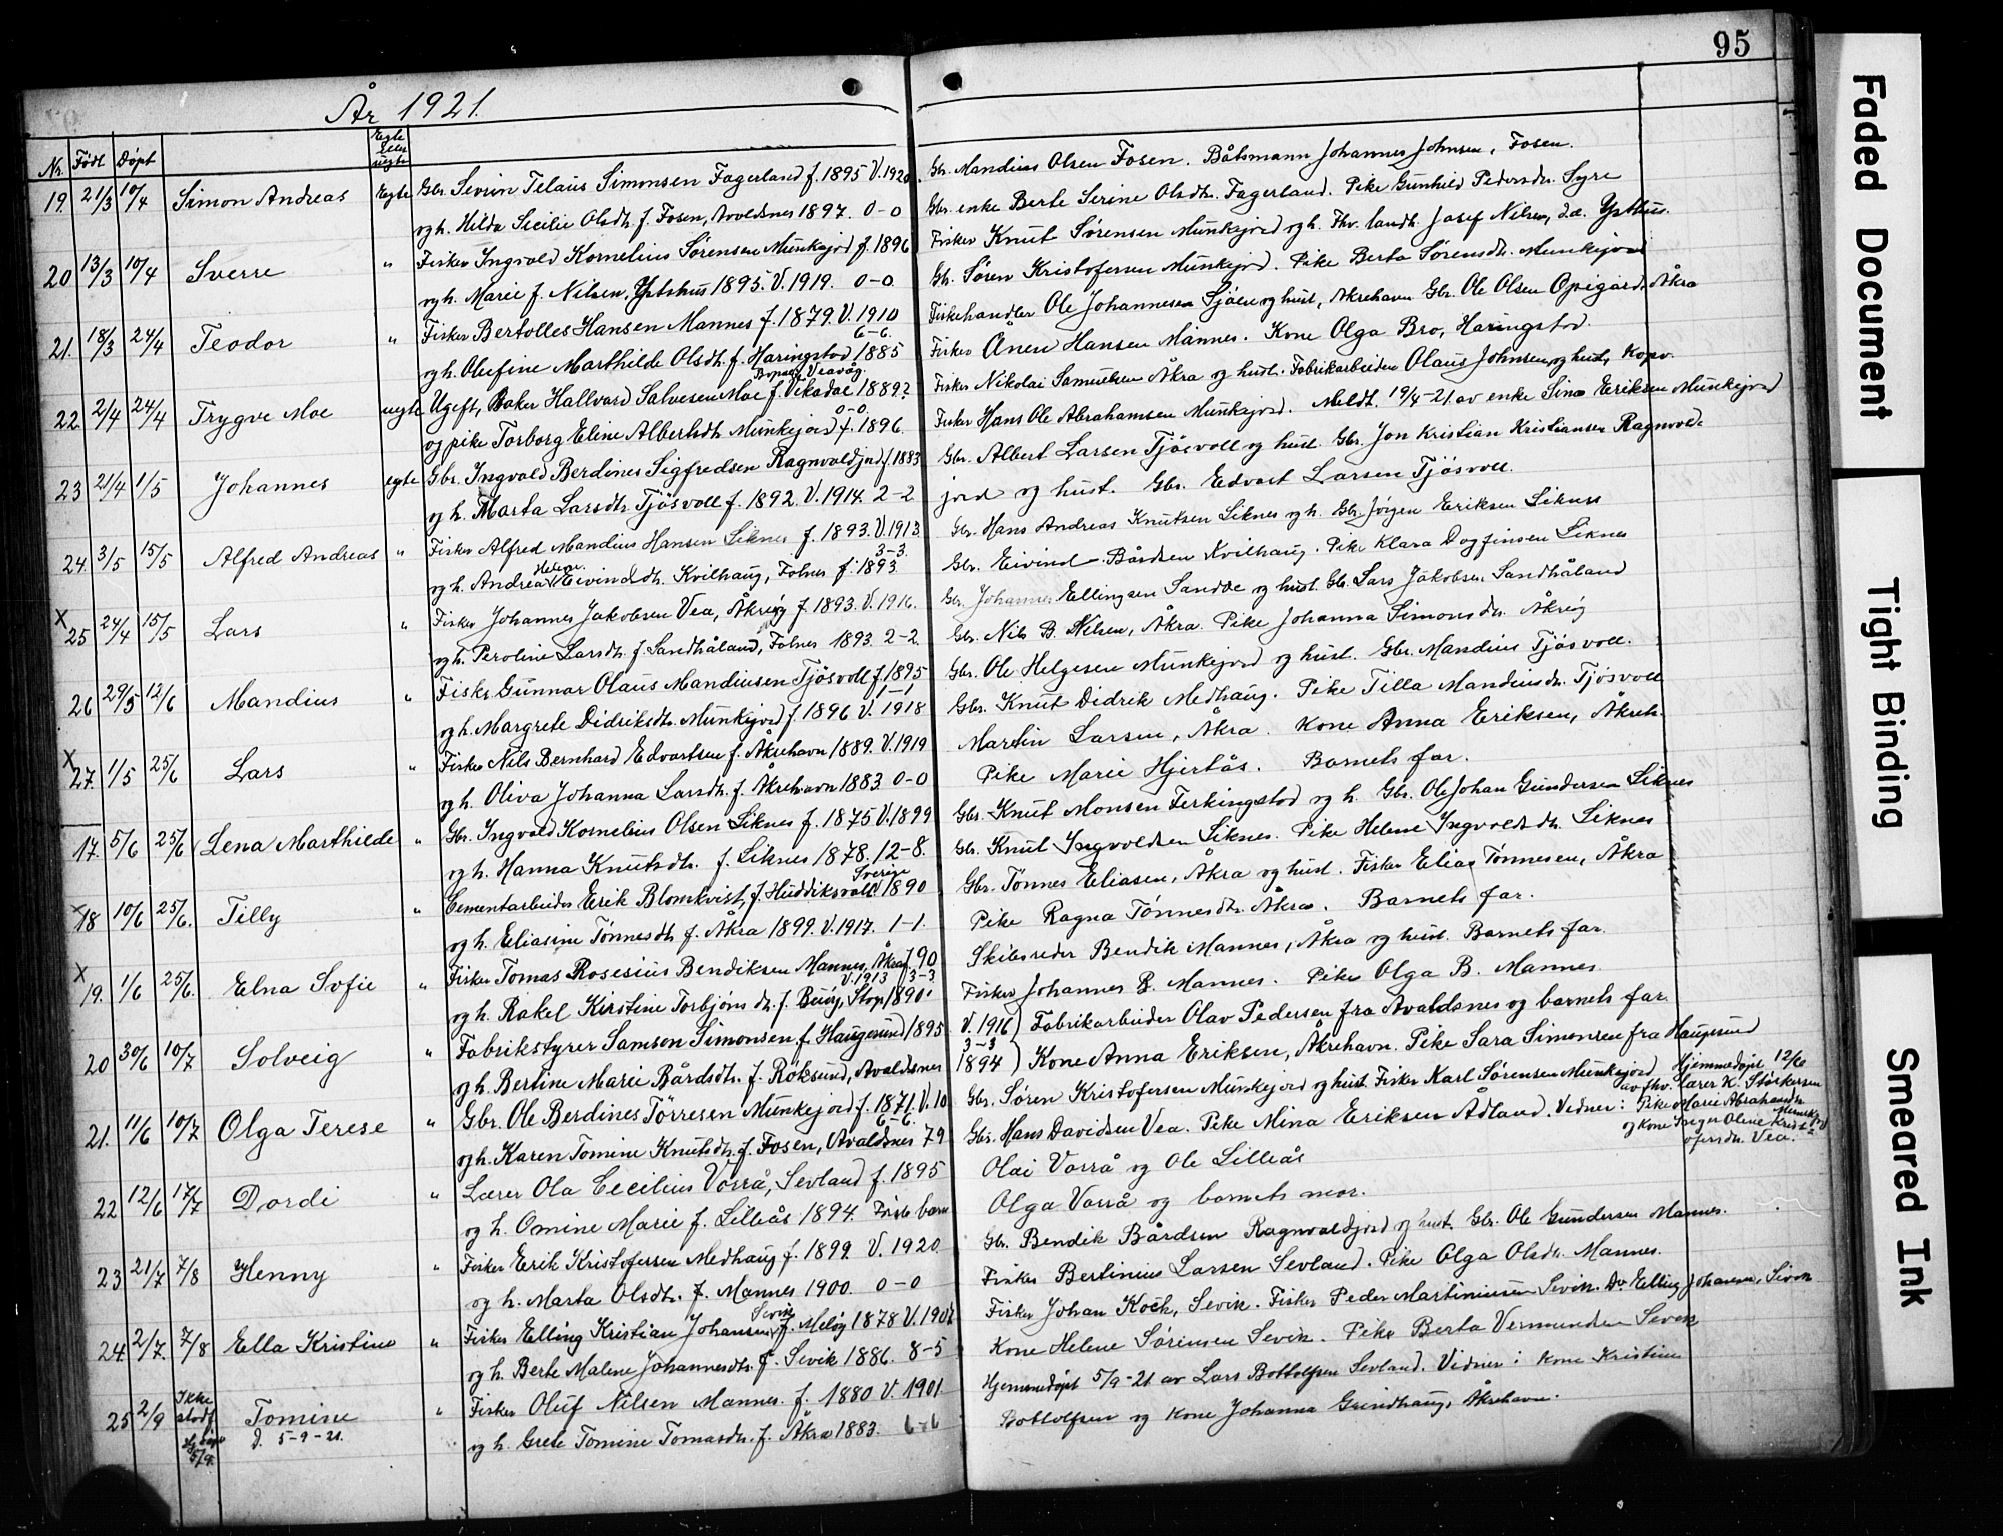 95
År 1921.
Nr. Født Døpt Egte eller uegte
19. 21/3 10/4 Simon Andreas Egte Gbr. Sevrin Telaus Simonsen Fagerland f. 1895 V. 1920 Gbr. Mandius Olsen Fosen. Båtsmann Johannes Johnsen, Fosen.
og h. Hilda Secilie Olsdtr. f. Fosen, Avoldsnes 1897. 0-0 Gbr. enke Berte Serine Olsdtr. Fagerland. Pike Gunhild Pedersdtr. Syre
20 13/3 10/4 Sverre " Fisker Ingvald Kornelius Sørensen Munkejord f. 1896 Fisker Knut Sørensen Munkejord og h. Fhv. landh. Josef Nilsen, d.æ. Ysthus.
og h. Marie f. Nilsen, Ystehus 1895. V. 1919. 0-0 Gb. Søren Kristofersen Munkejord. Pike Berta Sørensdtr. Munkejord
21. 18/3 24/4 Teodor " Fisker Bertolles Hansen Mannes f. 1879. V. 1910 Fiskehandler Ole Johannesen Sjøen og hust, Åkrehavn Gbr. Ole Olsen Opigard, Åkra
6-6.
og h. Olefine Marthilde Olsdtr. f. Haringstod 1885 Fisker Ånen Hansen Mannes. Kone Olga Bro, Haringstod.
22. 2/4 24/4 Trygve Moe uegte Ugift, Baker Hallvard Salvesen Moe f. Vikedal 1889? Fisker Nikolai Samuelsen Åkra og hust. Fabrikarbeider Olaus Johnsen og hust, Kopv.
Bopæl Veavåg.
0-0.
og pike Torborg Eline Albertsdtr. Munkejord f. 1896. Fisker Hans Ole Abrahamsen Munkejord. Meldt 19/4-21. av enke Sina Eriksen Munkejord
23 2/4 1/5 Johannes egte Gbr. Ingvald Berdines Sigfredsen Ragnvaldjord f. 1883 Gbr. Albert Larsen Tjøsvoll og hust. Gbr. Jon Kristian Kristiansen Ragnvold-
og h. Marta Larsdtr. Tjøsvoll f. 1892. V. 1914. 2-2 jord og hust. Gbr. Edvart Larsen Tjøsvoll.
24. 3/5 15/5 Alfred Andreas " Fisker Alfred Mandius Hansen Liknes f. 1893. V. 1913. Gbr. Hans Andreas Knutsen Liknes og h. Gbr. Jørgen Eriksen Liknes
3-3.
Helene
og h. Andrea Eivindsdtr. Kvilhaug, Falnes f. 1893. Gbr. Eivind Bårdsen Kvilhaug. Pike Klara Dagfinsen Liknes
X 25 24/4 15/5 Lars " Fisker Johannes Jakobsen Vea, Åkrøy f. 1893. V. 1916. Gbr. Johannes Ellingsen Sandve og hust. Gb. Lars Jakobsen Sandhåland
og h. Peroline Larsdtr. f. Sandhåland, Falnes 1893. 2-2. Gbr. Nils B. Nilsen, Åkra. Pike Johanna Simonsdtr. Åkrøy
26 29/5 12/6 Mandius " Fisker Gunnar Olaus Mandiussen Tjøsvoll f. 1895 Gbr. Ole Helgesen Munkejord og hust. Gbr. Mandius Tjøsvoll.
1-1
og h. Margrete Didriksdtr. Munkejord f. 1896 V. 1918 Gbr. Knut Didrik Medhaug. Pike Tilla Mandiusdtr. Tjøsvoll
X 27. 1/5 25/6 Lars " Fisker Nils Bernhard Edvartsen f. Åkrehavn 1889. V. 1919 Martin Larsen, Åkra. Kone Anna Eriksen, Åkreh.
og h. Oliva Johanna Larsdtr. f. Åkrehavn 1883. 0-0 Pike Marie Hjertås. Barnets far.
17. 5/6 25/6 Lena Marthilde " Gbr. Ingvald Kornelius Olsen Liknes f. 1875 V. 1899 Gbr. Knut Monsen Ferkingstod og h. Gbr. Ole Johan Gundersen Liknes
og h. Hanna Knutsdtr. f. Liknes 1878. 12-8. Gb. Knut Ingvoldsen Liknes. Pike Helene Ingvoldsdtr. Liknes
X 18 10/6 25/6. Tilly " Cementarbeider Erik Blomkvist, f. Huddiksvall 1890 Gbr. Tønnes Eliasen, Åkra og hust. Fisker Elias Tønnesen, Åkra
Sverige
og h. Eliasine Tønnesdtr. f. Åkra 1899. V. 1917. 1-1. Pike Ragna Tønnesdtr. Åkra. Barnets far.
X 19. 1/6 25/6. Elna Sofie " Fisker Tomas Rosesius Bendiksen Mannes, Åkra f. 90 Skibsreder Bendik Mannes, Åkra og hust. Barnets far.
V. 1913 3-3
og h. Rakel Kirstine Torbjørnsdtr. f. Buøy, Stop. 1890. Fisker Johannes B. Mannes. Pike Olga B. Mannes.
20 30/6 10/7 Solveig " Fabrikstyrer Samson Simonsen f. Haugesund 1895 V. 1916) Fabrikarbeider Olav Pedersen fra Avaldsnes og barnets far.
3-3
og h. Bertine Marie Bårdsdtr. f. Røksund, Avaldsnes 1894) Kone Anna Eriksen, Åkrehavn. Pike Sara Simonsen fra Haugesund
21. 11/6 10/7 Olga Terese " Gbr. Ole Berdines Tørresen Munkejord f. 1871. V. 10 Gbr. Søren Kristofersen Munkejord og hust. Fisker Karl Sørensen Munkejord Hjemmedøpt 12/6 av fhv. lærer K. Størkersen
6-6.
og h. Karen Tomine Knutsdtr. f. Fosen, Avaldsnes 79 Gbr. Hans Davidsen Vea. Pike Mina Eriksen Ådland. Vidner: Pike Marie Abrahamsen Munkejord og kone Inger Oline Kristofersdtr. Vea.
22 12/6 17/7 Dordi " Lærer Ola Cecilius Vorrå, Sevland f. 1895 Olai Vorrå og Ole Lilleås
og h. Omine Marie f. Lilleås 1894. Første barn Olga Vorrå og barnets mor.
23 21/7 7/8 Henny " Fisker Erik Kristofersen Medhaug f. 1899. V. 1920. Gb. Bendik Bårdsen Ragnvaldjord og hust. Gbr. Ole Gundersen Mannes.
og h. Marta Olsdtr. f. Mannes 1900. 0-0 Fisker Bertinius Larsen Sevland. Pike Olga Olsdtr. Mannes.
24. 2/7. 7/8 Ella Kristine " Fisker Elling Kristian Johansen f. Meløy 1878 V. 1907 Fisker Johan Kock, Sevik. Fisker Peder Martiniusen Sevik. Do Elling Johansen, Sevik
Sevik
og h. Berte Malene Johannesdtr. f. Sevik 1886. 8-5 Kone Helene Sørensen Sevik. Pike Berta Vermundsen Sevik
25 2/9 Ikke stadf. Hj.døpt 5/9. Tomine " Fisker Oluf Nilsen Mannes. f. 1880 V. 1901 Hjemmedøpt 5/9-21 av Lars Bottolfsen Sevland. Vidner: Kone Kristine
d. 5-9-21. og h. Grete Tomine Tomasdtr. f. Åkra 1883. 6-6 Bottolfsen og Kone Johanna Grindhaug, Åkrehavn.
Faded Document
Tight Binding
Smeared Ink